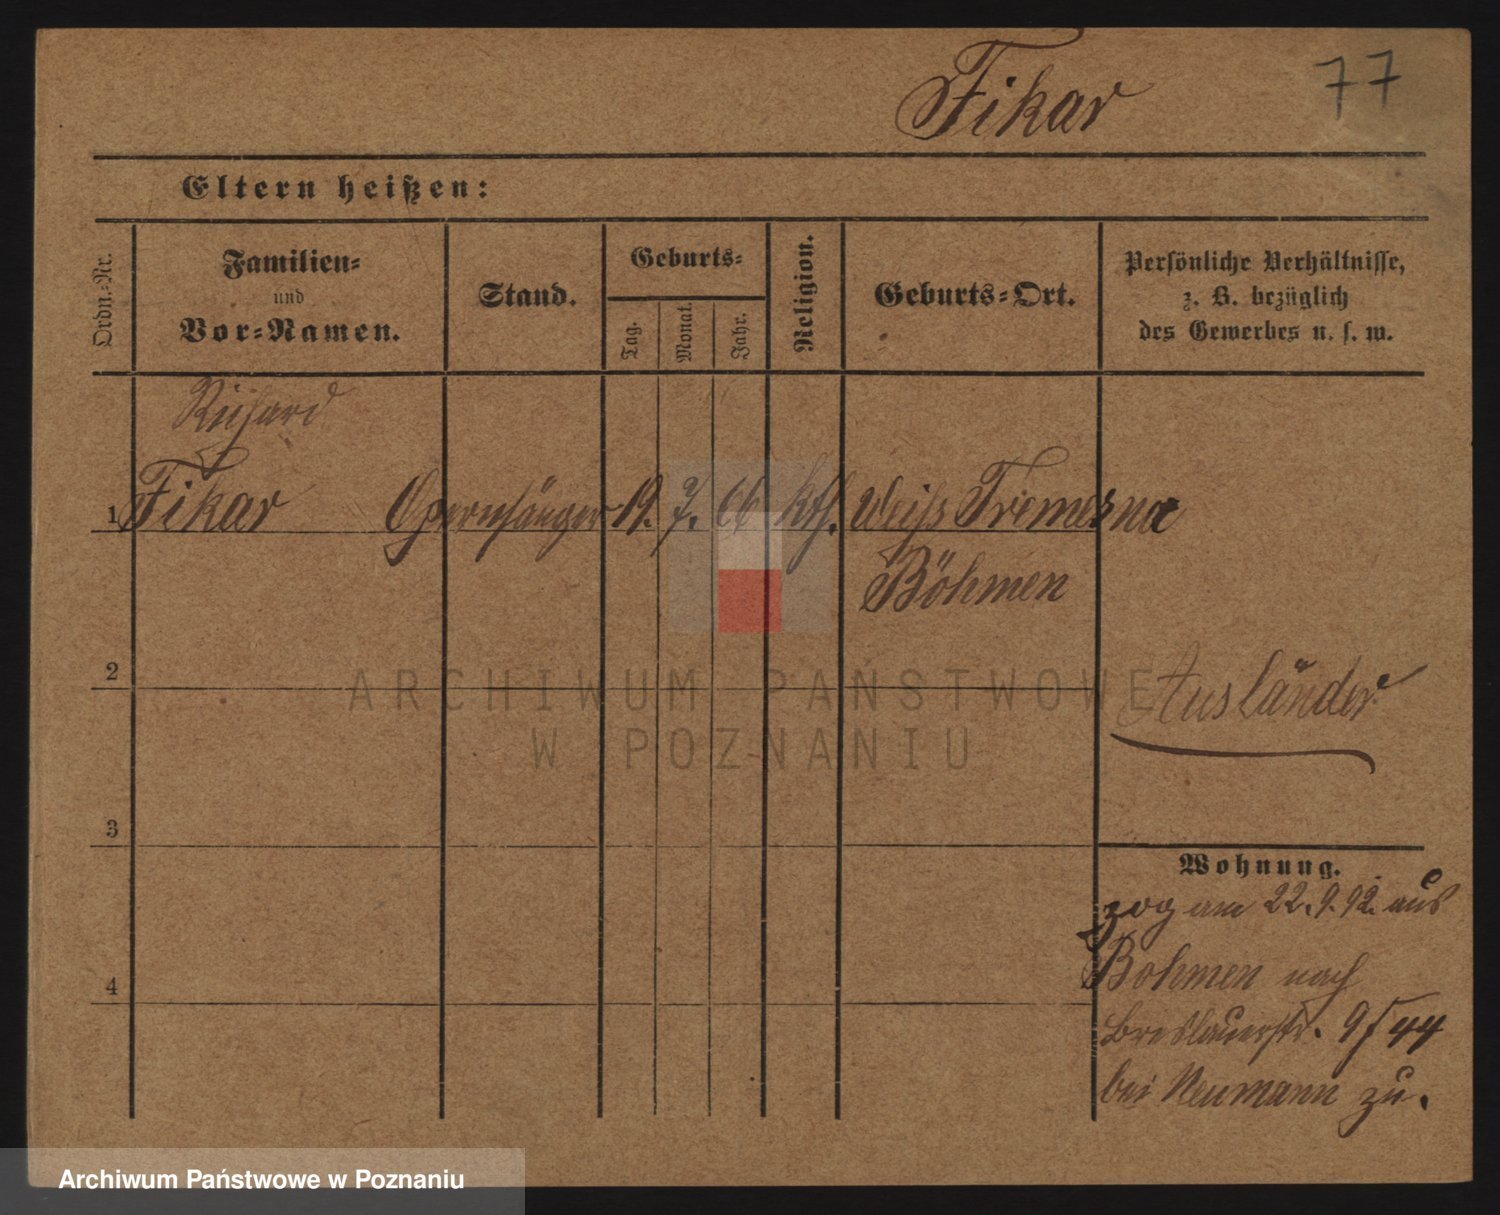 Fikar
77
Eltern heißen:
Ordn.-Nr.
Familien-
und
Vor-Namen.
Stand.
Geburts-
Tag.
Monat.
Jahr.
Religion.
Geburts-Ort.
Persönliche Verhältnisse,
z. B. bezüglich
des Gewerbes u. s. w.
Richard
1 Fikar Opernsänger 19. 7. 66 kth. Weiss Tremesna
Böhmen
2
Ausländer
3
Wohnung.
zog am 22. 9. 92. aus
4
Böhmen nach
Breslauerstr. 9/44
bei Neumann zu.
ARCHIWUM PAŃSTWOWE
W POZNANIU
Archiwum Państwowe w Poznaniu